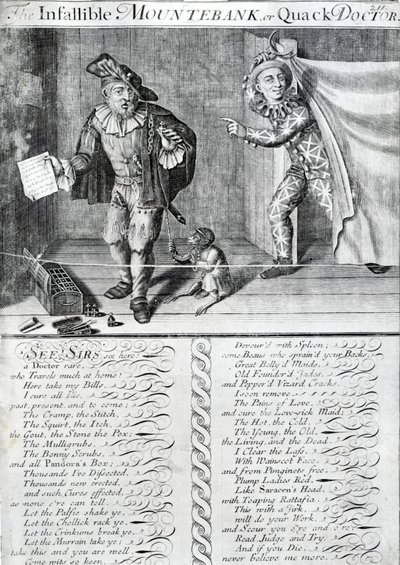 The Infallible MOUNTEBANK, or Quack DOCTOR.
211.
SEE, SIRS, see here!
a Doctor rare,
who Travels much at home!
Here take my Bills,
I cure all Ills,
past, present, and to come;
The Cramp, the Stitch,
The Squirt, the Itch,
the Gout, the Stone the Pox;
The Mulligrubs,
The Bonny Scrubs,
and all Pandora's Box;
Thousands I've Dissected,
Thousands new erected,
and such Cures effected,
as none e're can tell.
Let the Palsie shake ye,
Let the Chollick rack ye,
Let the Crinkums break ye,
Let the Murrain take ye;
take this and you are well.
Come wits so keen,
Devour'd with Spleen;
come Beaus who sprain'd your Backs,
Great Belly'd Maids,
Old Founder'd Jades,
and Pepper'd Vizard Cracks.
I soon remove
The Pains of Love,
and cure the Love-sick Maid;
The Hot, the Cold,
The Young, the Old,
the Living, and the Dead.
I Clear the Lass,
With Wainscot Face,
and from Pimginets free,
Plump Ladies Red,
Like Saracen's Head,
with Toaping Rattafia.
This with a Jirk,
will do your Work,
and Scour you o're and o're,
Read, Judge and Try,
And if you Die,
never believe me more.